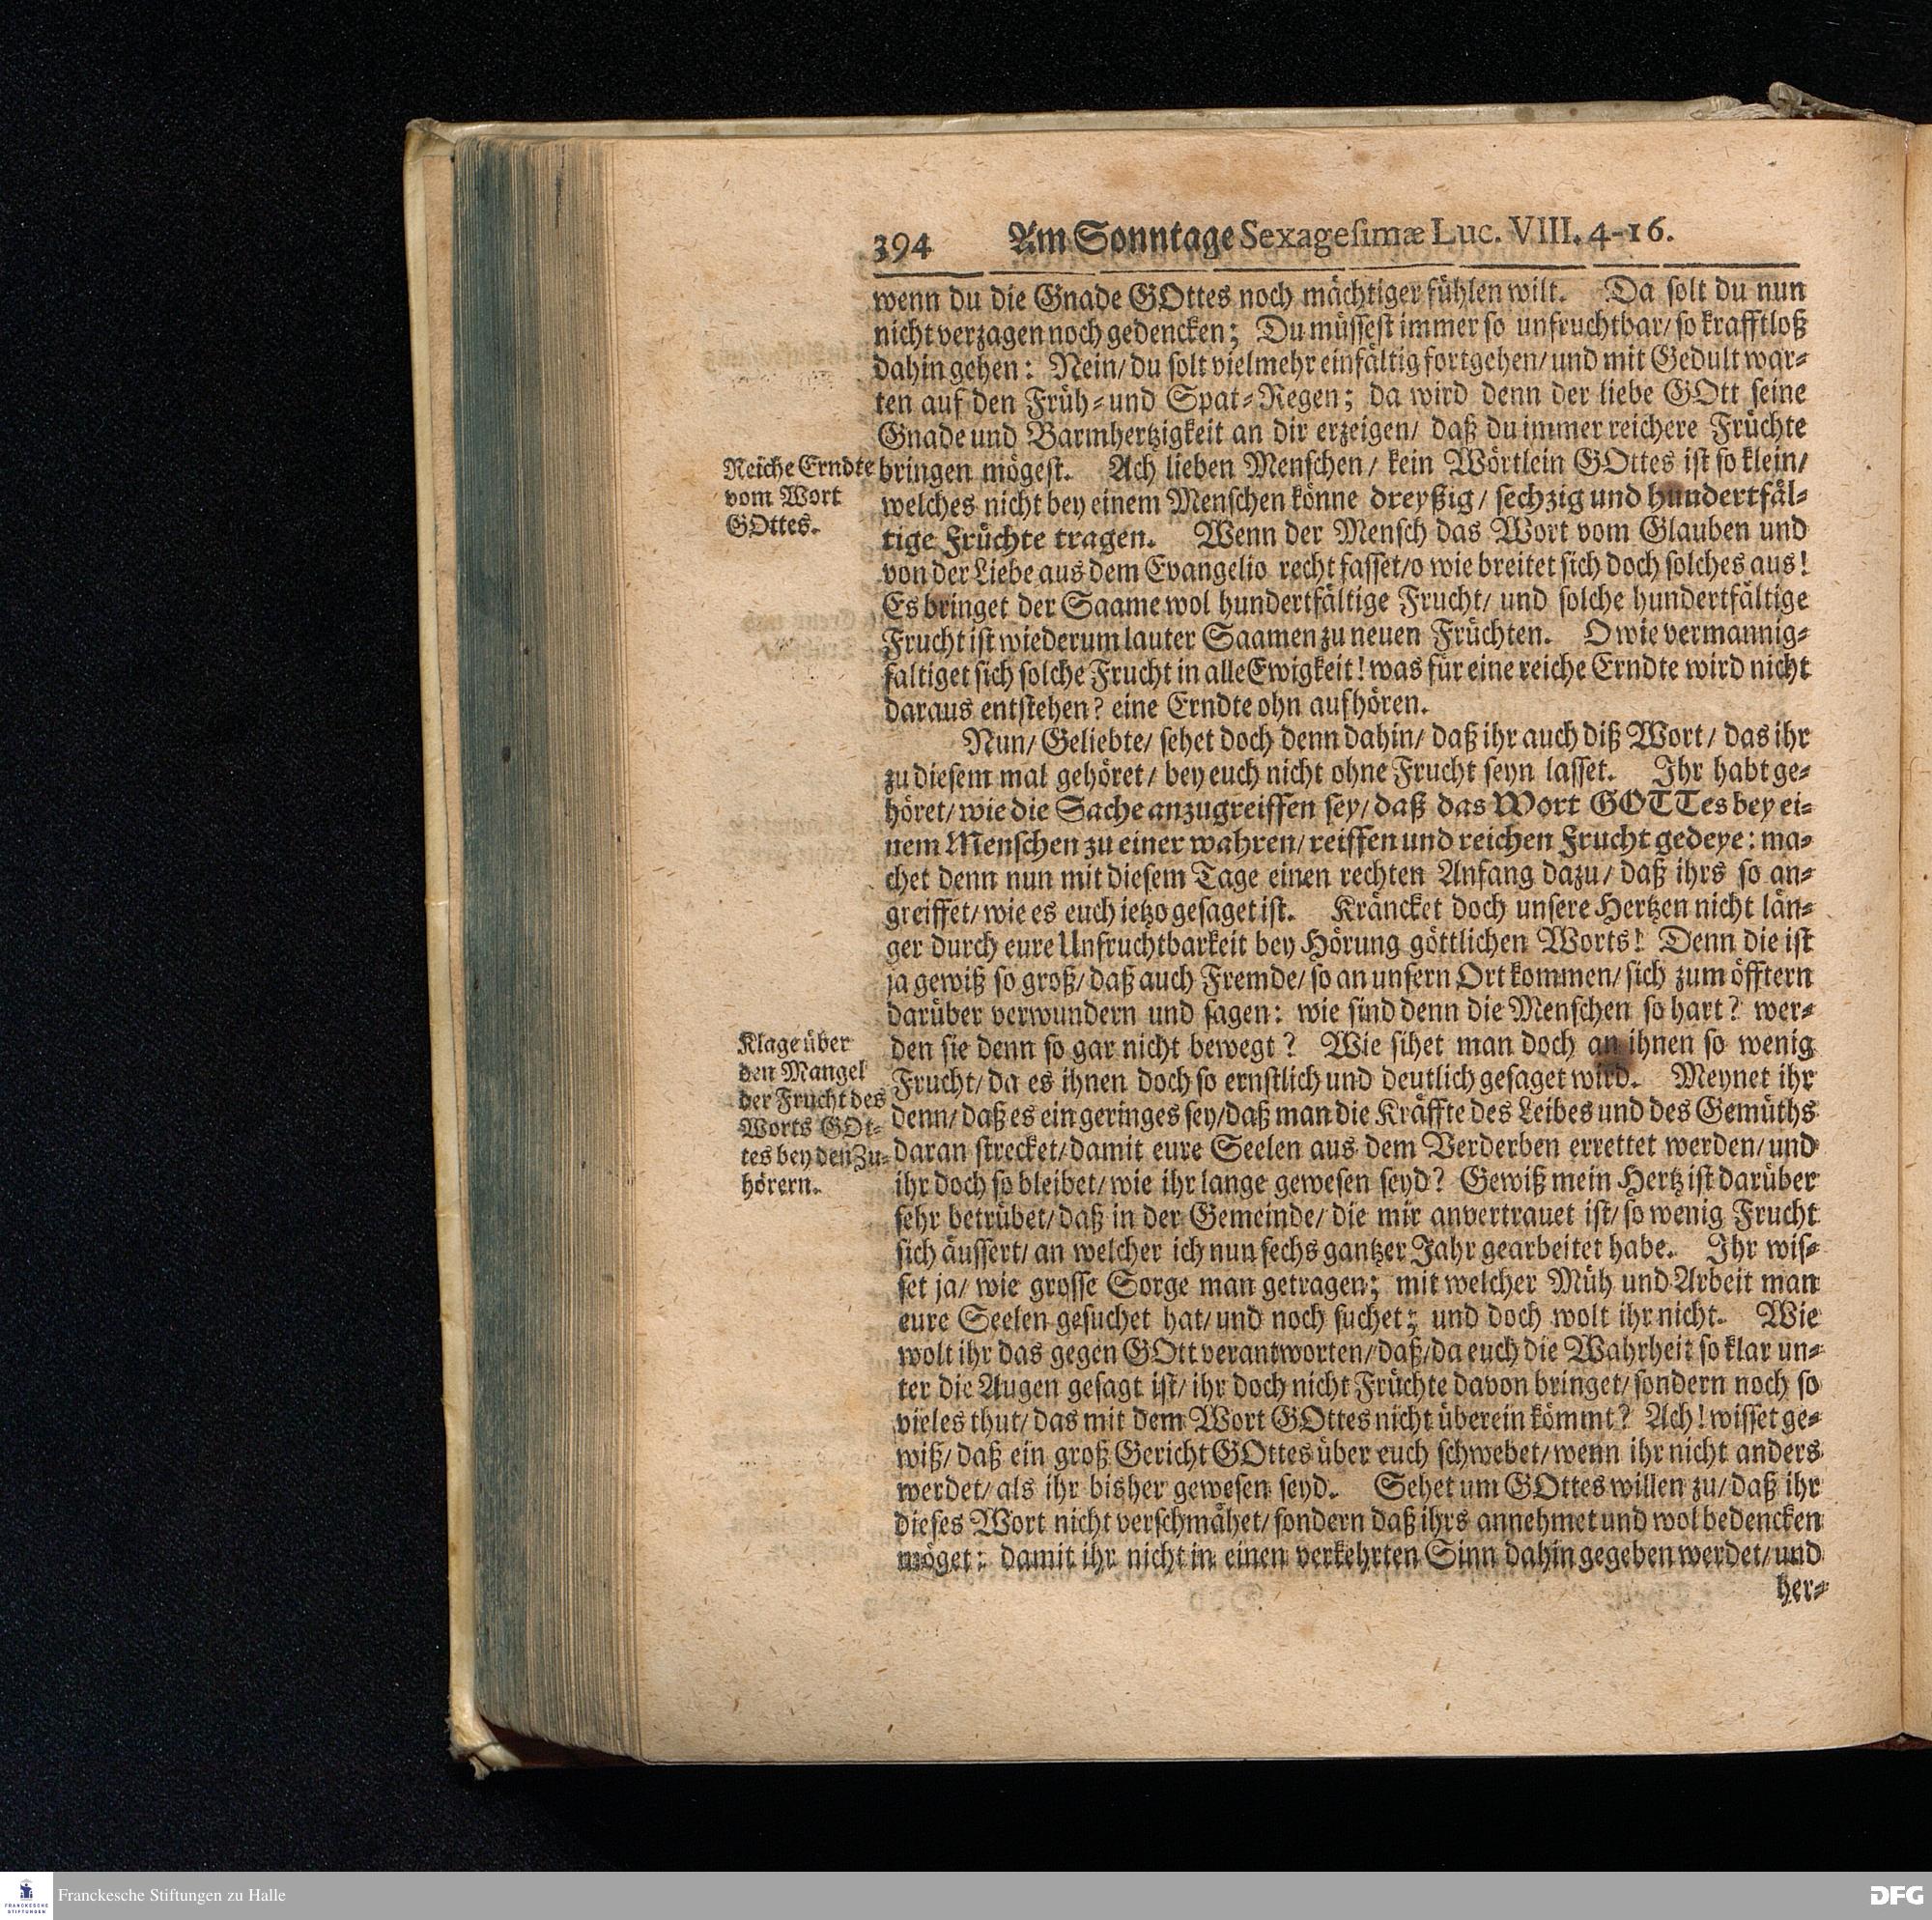 394 Am Sonntage Sexagesimæ Luc. VIII. 4-16.
wenn du die Gnade GOttes noch mächtiger fühlen wilt. Da solt du nun
nicht verzagen noch gedencken; Du müssest immer so unfruchtbar/ so krafftloß
dahin gehen: Nein/ du solt vielmehr einfältig fortgehen/ und mit Gedult war-
ten auf den Früh- und Spat-Regen; da wird denn der liebe GOtt seine
Gnade und Barmhertzigkeit an dir erzeigen/ daß du immer reichere Früchte
bringen mögest. Ach lieben Menschen/ kein Wörtlein GOttes ist so klein/
welches nicht bey einem Menschen könne dreyßig/ sechzig und hundertfäl-
tige Früchte tragen. Wenn der Mensch das Wort vom Glauben und
von der Liebe aus dem Evangelio recht fasset/ o wie breitet sich doch solches aus!
Es bringet der Saame wol hundertfältige Frucht/ und solche hundertfältige
Frucht ist wiederum lauter Saamen zu neuen Früchten. O wie vermannig-
faltiget sich solche Frucht in alle Ewigkeit! was für eine reiche Erndte wird nicht
daraus entstehen? eine Erndte ohn aufhören.
Reiche Erndte
vom Wort
GOttes.
Nun/ Geliebte/ sehet doch denn dahin/ daß ihr auch diß Wort/ das ihr
zu diesem mal gehöret/ bey euch nicht ohne Frucht seyn lasset. Ihr habt ge-
höret/ wie die Sache anzugreiffen sey/ daß das Wort GOTTes bey ei-
nem Menschen zu einer wahren/ reiffen und reichen Frucht gedeye: ma-
chet denn nun mit diesem Tage einen rechten Anfang dazu/ daß ihrs so an-
greiffet/ wie es euch ietzo gesaget ist. Kräncket doch unsere Hertzen nicht län-
ger durch eure Unfruchtbarkeit bey Hörung göttlichen Worts! Denn die ist
ja gewiß so groß/ daß auch Fremde/ so an unsern Ort kommen/ sich zum öfftern
darüber verwundern und sagen: wie sind denn die Menschen so hart? wer-
den sie denn so gar nicht bewegt? Wie sihet man doch an ihnen so wenig
Frucht/ da es ihnen doch so ernstlich und deutlich gesaget wird. Meynet ihr
denn/ daß es ein geringes sey/ daß man die Kräffte des Leibes und des Gemüths
daran strecket/ damit eure Seelen aus dem Verderben errettet werden/ und
ihr doch so bleibet/ wie ihr lange gewesen seyd? Gewiß mein Hertz ist darüber
sehr betrübet/ daß in der Gemeinde/ die mir anvertrauet ist/ so wenig Frucht
sich äussert/ an welcher ich nun sechs gantzer Jahr gearbeitet habe. Ihr wis-
set ja/ wie grosse Sorge man getragen; mit welcher Müh und Arbeit man
eure Seelen gesuchet hat/ und noch suchet; und doch wolt ihr nicht. Wie
wolt ihr das gegen GOtt verantworten/ daß/ da euch die Wahrheit so klar un-
ter die Augen gesagt ist/ ihr doch nicht Früchte davon bringet/ sondern noch so
vieles thut/ das mit dem Wort GOttes nicht überein kömmt? Ach! wisset ge-
wiß/ daß ein groß Gericht GOttes über euch schwebet/ wenn ihr nicht anders
werdet/ als ihr bisher gewesen seyd. Sehet um GOttes willen zu/ daß ihr
dieses Wort nicht verschmähet/ sondern daß ihrs annehmet und wol bedencken
möget: damit ihr nicht in einen verkehrten Sinn dahin gegeben werdet/ und
her-
Klage über
den Mangel
der Frucht des
Worts GOt-
tes bey den Zu-
hörern.
FRANCKESCHE
STIFTUNGEN
Franckesche Stiftungen zu Halle
DFG